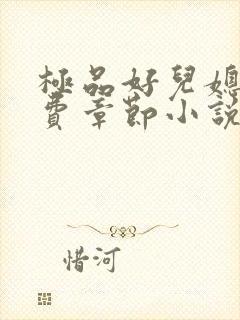 極品好兒媳
費章節小說
惜河